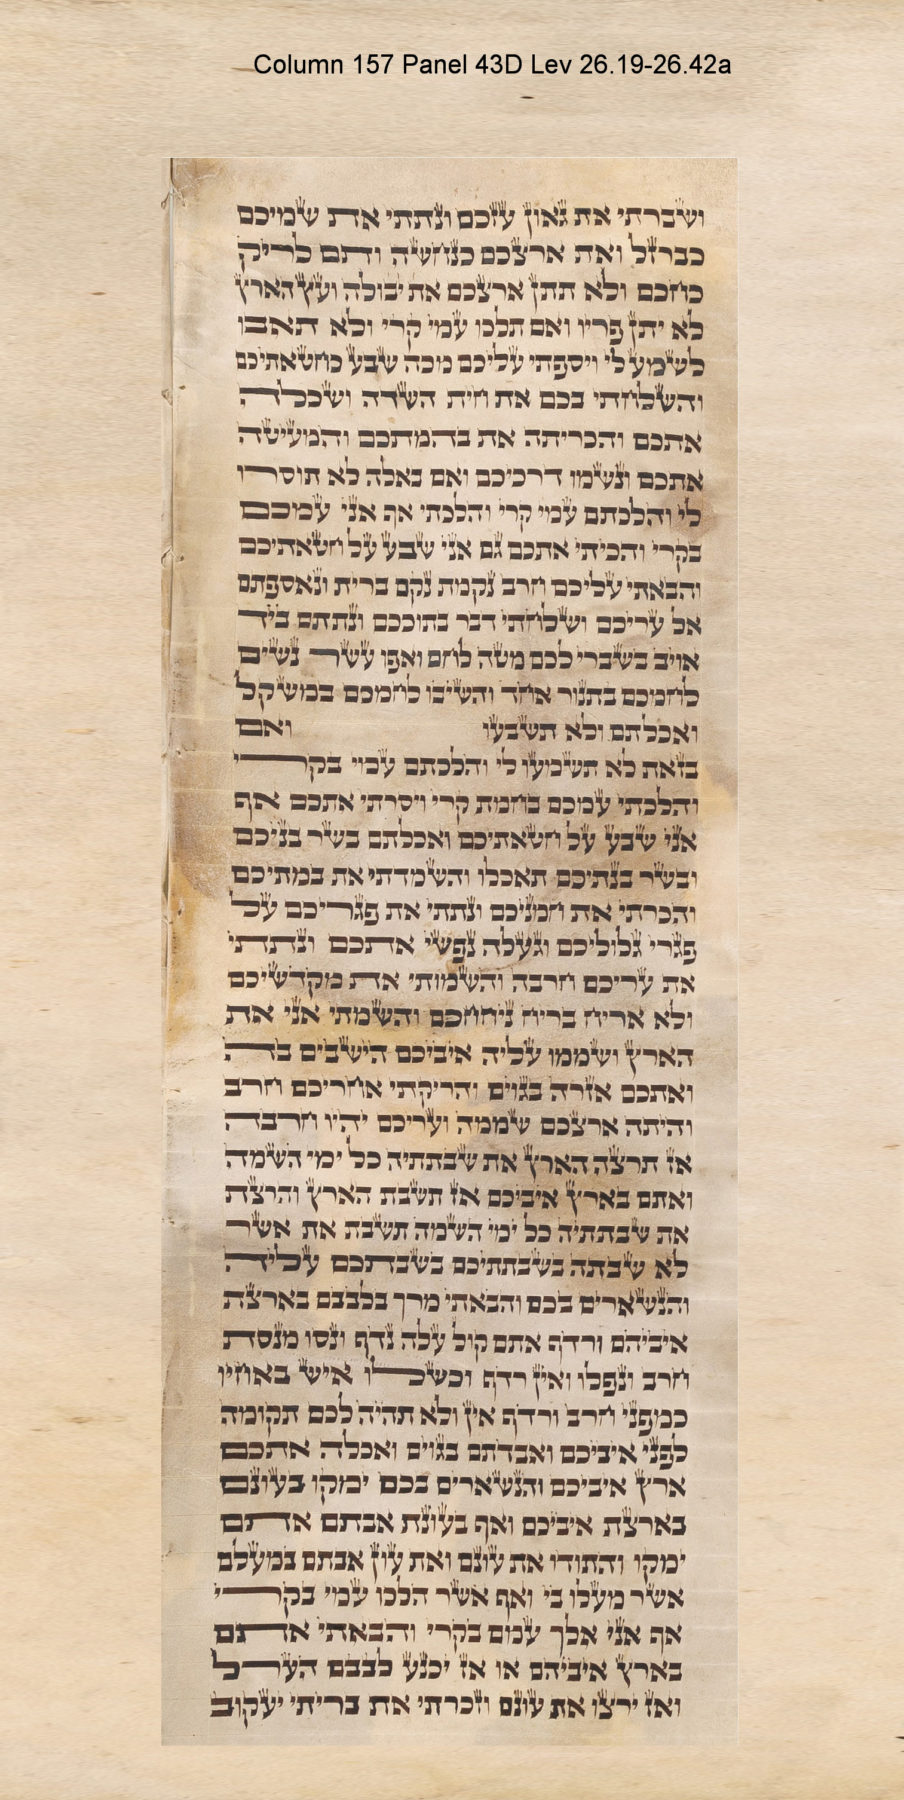 Column 157 Panel 43D Lev 26.19-26.42a
ושברתי את גאון עזכם ונתתי את שמיכם
כברזל ואת ארצכם כנחשה ותם לריק
כוחכם ולא תתן ארצכם את יבולה ועץ הארץ
לא יתן פריו ואם תלכו עמי קרי ולא תאבו
לשמע לי ויספתי עליכם מכה שבע כחטאתיכם
והשלחתי בכם את חית השדה ושכלה
אתכם והכריתה את בהמתכם והמעיטה
אתכם ונשמו דרכיכם ואם באלה לא תוסרו
לי והלכתם עמי קרי והלכתי אף אני עמכם
בקרי והכיתי אתכם גם אני שבע על חטאתיכם
והבאתי עליכם חרב נקמת נקם ברית ונאספתם
אל עריכם ושלחתי דבר בתוככם ונתתם ביד
אויב בשברי לכם מטה לחם ואפו עשר נשים
לחמכם בתנור אחד והשיבו לחמכם במשקל
ואכלתם ולא תשבעו ואם
בזאת לא תשמעו לי והלכתם עמי בקרי
והלכתי עמכם בחמת קרי ויסרתי אתכם אף
אני שבע על חטאתיכם ואכלתם בשר בניכם
ובשר בנתיכם תאכלו והשמדתי את במתיכם
והכרתי את חמניכם ונתתי את פגריכם על
פגרי גלוליכם וגעלה נפשי אתכם ונתתי
את עריכם חרבה והשמותי את מקדשיכם
ולא אריח בריח ניחחכם והשמתי אני את
הארץ ושממו עליה איביכם הישבים בה
ואתכם אזרה בגוים והריקתי אחריכם חרב
והיתה ארצכם שממה ועריכם יהיו חרבה
אז תרצה הארץ את שבתתיה כל ימי השמה
ואתם בארץ איביכם אז תשבת הארץ והרצת
את שבתתיה כל ימי השמה תשבת את אשר
לא שבתה בשבתתיכם בשבתכם עליה
והנשארים בכם והבאתי מרך בלבבם בארצת
איביהם ורדף אתם קול עלה נדף ונסו מנסת
חרב ונפלו ואין רדף וכשלו איש באחיו
כמפני חרב ורדף אין ולא תהיה לכם תקומה
לפני איביכם ואבדתם בגוים ואכלה אתכם
ארץ איביכם והנשארים בכם ימקו בעונם
בארצת איביכם ואף בעונת אבתם אתם
ימקו והתודו את עונם ואת עון אבתם במעלם
אשר מעלו בי ואף אשר הלכו עמי בקרי
אף אני אלך עמם בקרי והבאתי אתם
בארץ איביהם או אז יכנע לבבם הערל
ואז ירצו את עונם וזכרתי את בריתי יעקוב